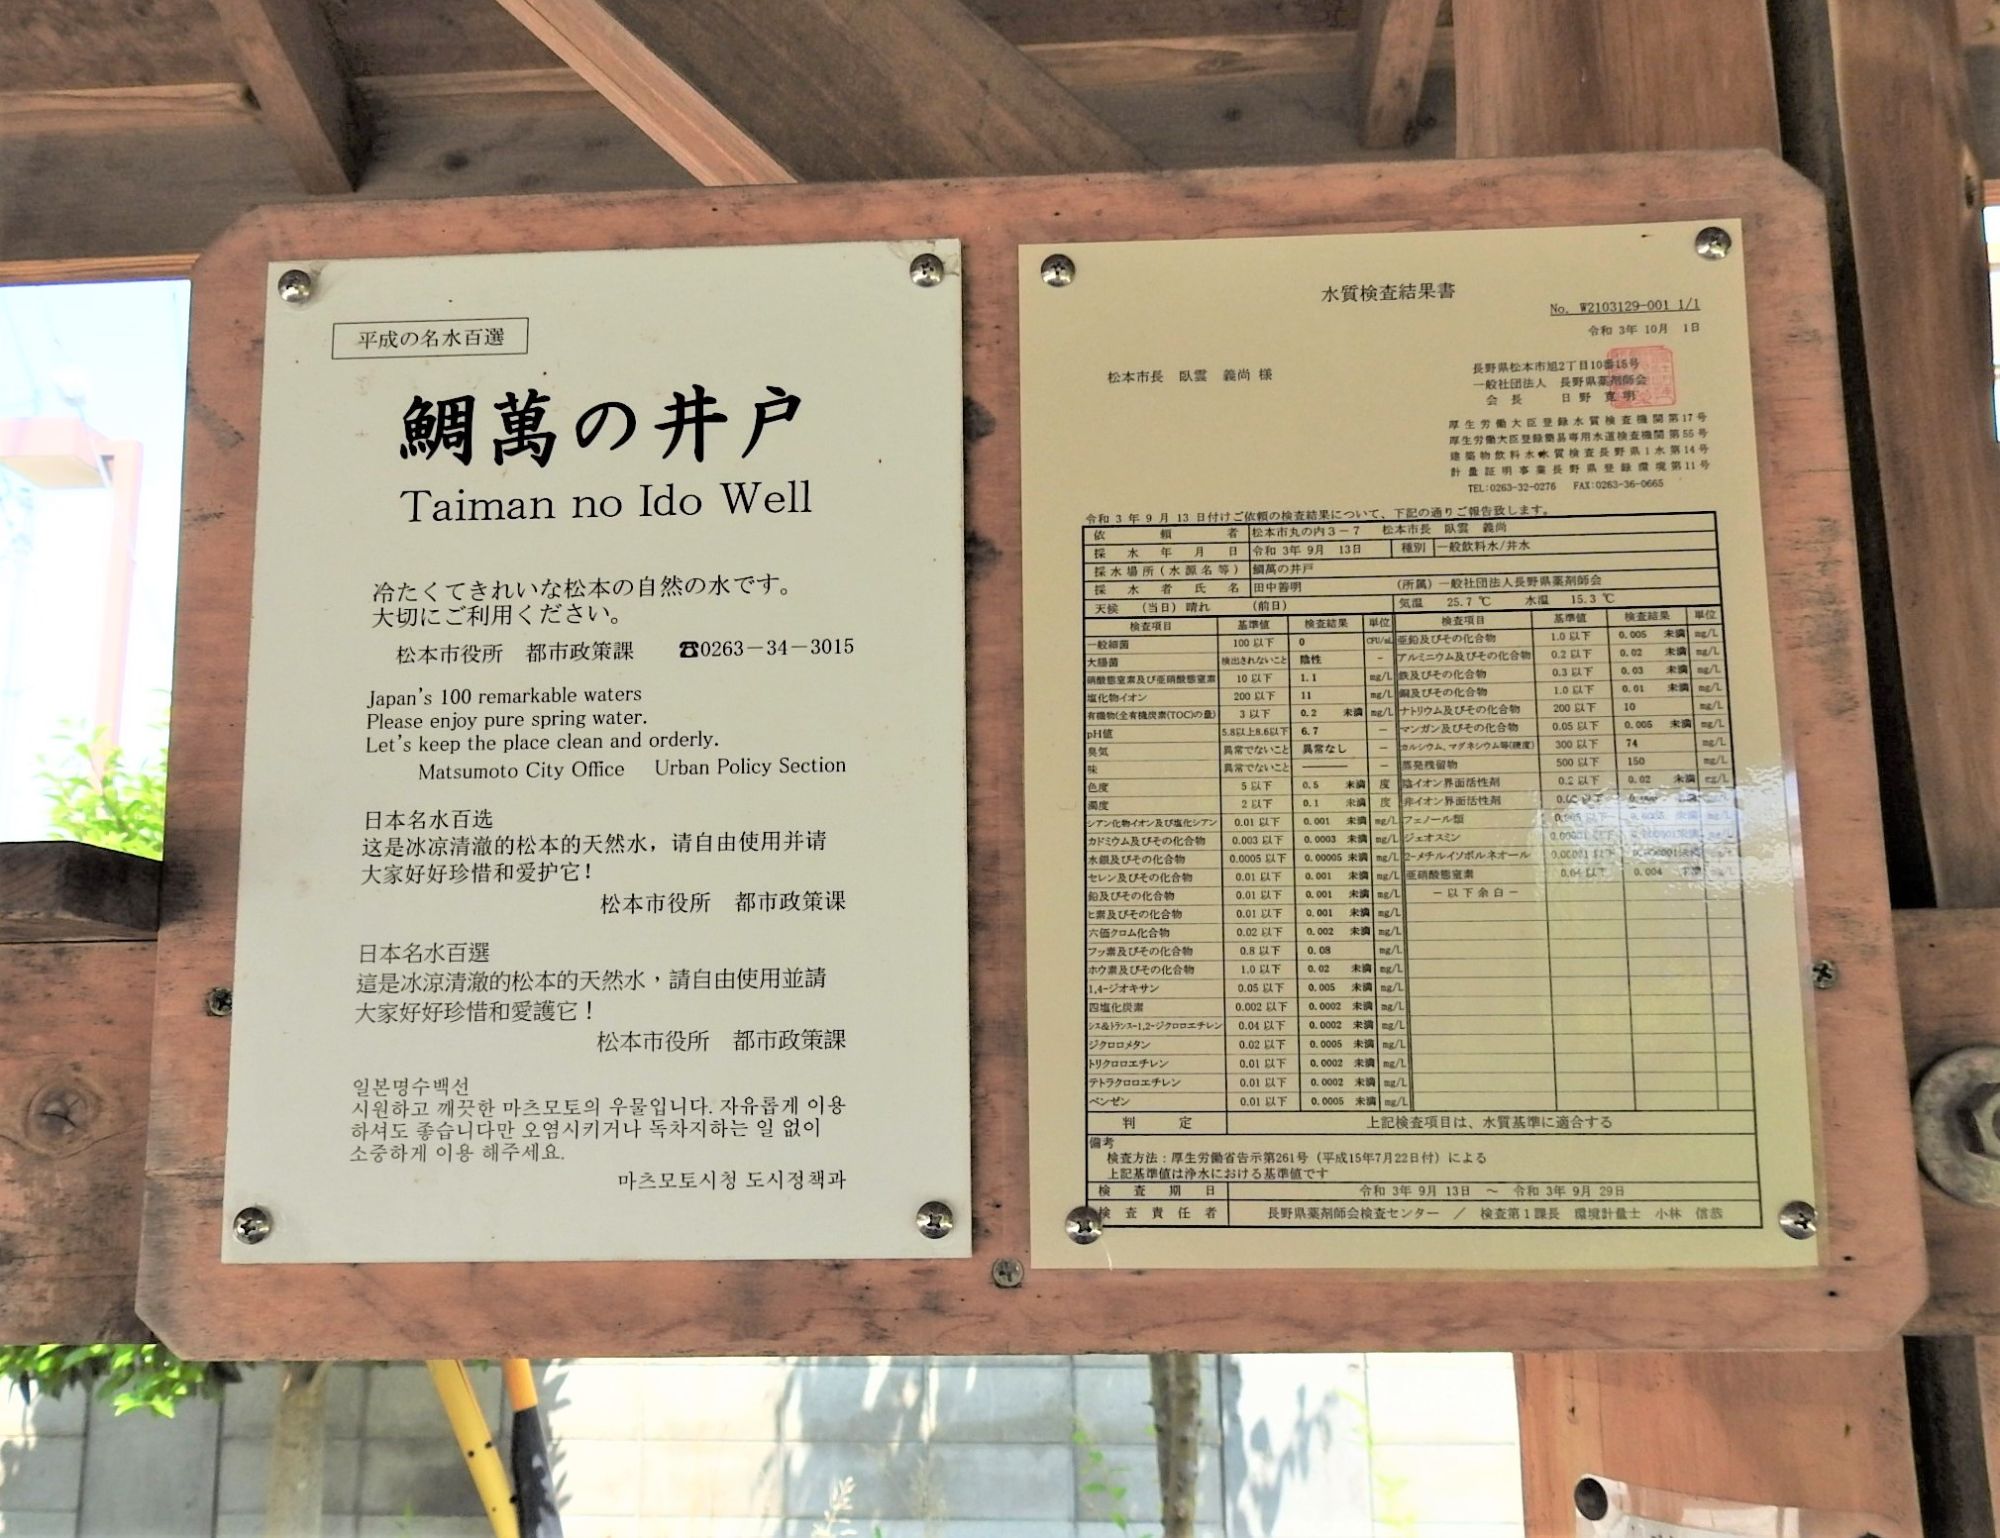 平成の名水百選
鯛萬の井戸
Taiman no Ido Well
冷たくてきれいな松本の自然の水です。
大切にご利用ください。
松本市役所　都市政策課　☎0263－34－3015
Japan's 100 remarkable waters
Please enjoy pure spring water.
Let's keep the place clean and orderly.
Matsumoto City Office　Urban Policy Section
日本名水百选
这是冰凉清澈的松本的天然水，请自由使用并请
大家好好珍惜和爱护它！
松本市役所　都市政策课
日本名水百選
這是冰涼清澈的松本的天然水，請自由使用並請
大家好好珍惜和愛護它！
松本市役所　都市政策課
일본명수백선
시원하고 깨끗한 마츠모토의 우물입니다. 자유롭게 이용
하셔도 좋습니다만 오염시키거나 독차지하는 일 없이
소중하게 이용 해주세요.
마츠모토시청 도시정책과
水質検査結果書
No. W2103129-001 1/1
令和 3年 10月 1日
松本市長　臥雲　義尚 様
長野県松本市旭2丁目10番15号
一般社団法人　長野県薬剤師会
会長　日野　寛明
厚生労働大臣登録水質検査機関第17号
厚生労働大臣登録簡易専用水道検査機関第55号
建築物飲料水水質検査長野県1水第14号
計量証明事業長野県登録環境第11号
TEL:0263-32-0276　FAX:0263-36-0665
令和 3 年 9 月 13 日付けご依頼の検査結果について、下記の通りご報告致します。
依頼者　松本市丸の内3－7　松本市長　臥雲　義尚
採水年月日　令和 3年 9月 13日　種別　一般飲料水/井水
採水場所(水源名等)　鯛萬の井戸
採水者氏名　田中善明　(所属) 一般社団法人長野県薬剤師会
天候　(当日) 晴れ　(前日)　気温　25.7 ℃　水温　15.3 ℃
検査項目　基準値　検査結果　単位　検査項目　基準値　検査結果　単位
一般細菌　100 以下　0　CFU/mL　亜鉛及びその化合物　1.0 以下　0.005 未満　mg/L
大腸菌　検出されないこと　陰性　－　アルミニウム及びその化合物　0.2 以下　0.02 未満　mg/L
硝酸態窒素及び亜硝酸態窒素　10 以下　1.1　mg/L　鉄及びその化合物　0.3 以下　0.03 未満　mg/L
塩化物イオン　200 以下　11　mg/L　銅及びその化合物　1.0 以下　0.01 未満　mg/L
有機物(全有機炭素(TOC)の量)　3 以下　0.2 未満　mg/L　ナトリウム及びその化合物　200 以下　10　mg/L
pH値　5.8以上8.6以下　6.7　－　マンガン及びその化合物　0.05 以下　0.005 未満　mg/L
臭気　異常でないこと　異常なし　－　カルシウム、マグネシウム等(硬度)　300 以下　74　mg/L
味　異常でないこと　――――　－　蒸発残留物　500 以下　150　mg/L
色度　5 以下　0.5 未満　度　陰イオン界面活性剤　0.2 以下　0.02 未満　mg/L
濁度　2 以下　0.1 未満　度　非イオン界面活性剤
シアン化物イオン及び塩化シアン　0.01 以下　0.001 未満　mg/L　フェノール類　0.005 以下　0.0005 未満　mg/L
カドミウム及びその化合物　0.003 以下　0.0003 未満　mg/L　ジェオスミン　0.00001 以下　0.000001未満　mg/L
水銀及びその化合物　0.0005 以下　0.00005 未満　mg/L　2-メチルイソボルネオール　0.00001 以下　0.000001未満　mg/L
セレン及びその化合物　0.01 以下　0.001 未満　mg/L　亜硝酸態窒素　0.04 以下　0.004 未満　mg/L
鉛及びその化合物　0.01 以下　0.001 未満　mg/L　－以下余白－
ヒ素及びその化合物　0.01 以下　0.001 未満　mg/L
六価クロム化合物　0.02 以下　0.002 未満　mg/L
フッ素及びその化合物　0.8 以下　0.08　mg/L
ホウ素及びその化合物　1.0 以下　0.02 未満　mg/L
1,4-ジオキサン　0.05 以下　0.005 未満　mg/L
四塩化炭素　0.002 以下　0.0002 未満　mg/L
シス&トランス-1,2-ジクロロエチレン　0.04 以下　0.0002 未満　mg/L
ジクロロメタン　0.02 以下　0.0005 未満　mg/L
トリクロロエチレン　0.01 以下　0.0002 未満　mg/L
テトラクロロエチレン　0.01 以下　0.0002 未満　mg/L
ベンゼン　0.01 以下　0.0005 未満　mg/L
判定　上記検査項目は、水質基準に適合する
備考
検査方法：厚生労働省告示第261号（平成15年7月22日付）による
上記基準値は浄水における基準値です
検査期日　令和 3年 9月 13日　～　令和 3年 9月 29日
検査責任者　長野県薬剤師会検査センター　／　検査第1課長　環境計量士　小林　信恭